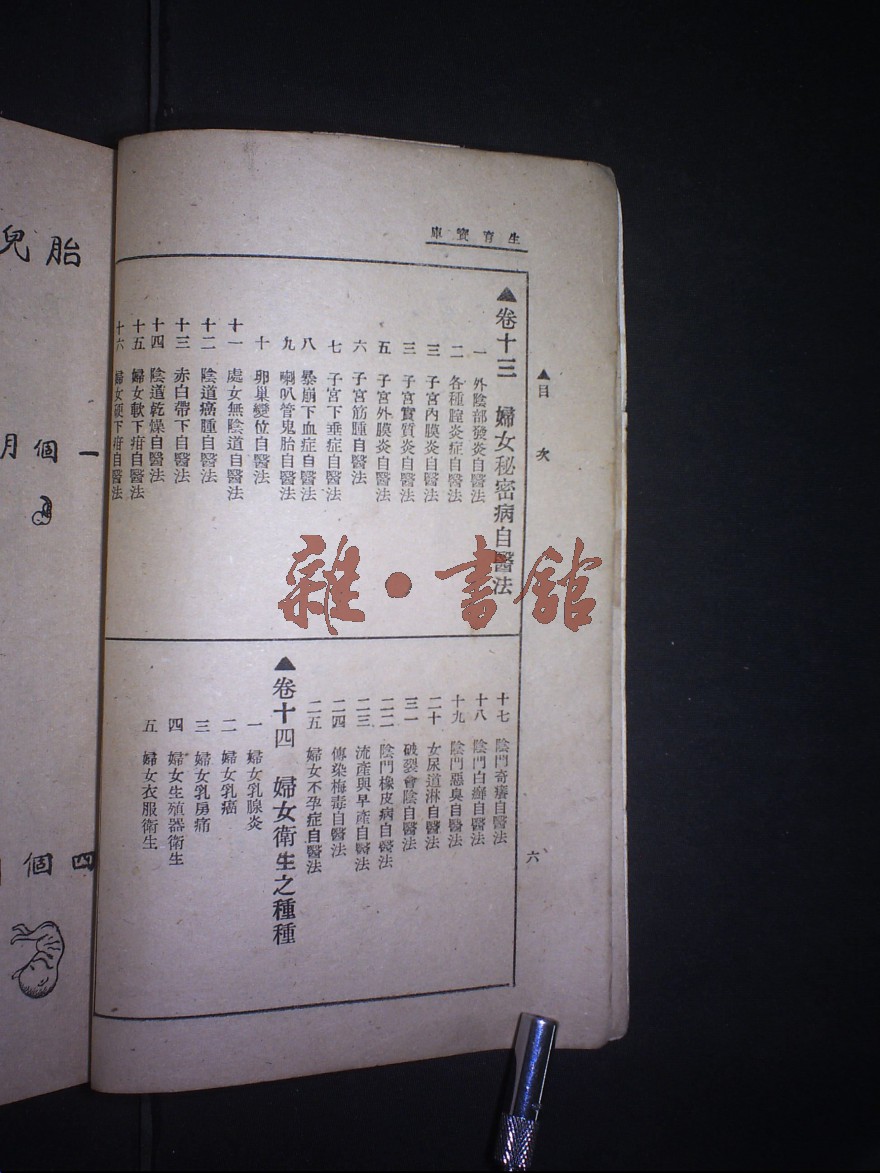 生育寶庫
▲目次
六
▲卷十三 婦女秘密病自醫法
一 外陰部發炎自醫法
二 各種腟炎症自醫法
三 子宮內膜炎自醫法
三 子宮實質炎自醫法
五 子宮外膜炎自醫法
六 子宮筋腫自醫法
七 子宮下垂症自醫法
八 暴崩下血症自醫法
九 喇叭管鬼胎自醫法
十 卵巢變位自醫法
十一 處女無陰道自醫法
十二 陰道癌腫自醫法
十三 赤白帶下自醫法
十四 陰道乾燥自醫法
十五 婦女軟下疳自醫法
十六 婦女硬下疳自醫法
十七 陰門奇癢自醫法
十八 陰門白癬自醫法
十九 陰門惡臭自醫法
二十 女尿道淋自醫法
三一 破裂會陰自醫法
二二 陰門橡皮病自醫法
二三 流產與早產自醫法
二四 傳染梅毒自醫法
二五 婦女不孕症自醫法
▲卷十四 婦女衛生之種種
一 婦女乳腺炎
二 婦女乳癌
三 婦女乳房痛
四 婦女生殖器衛生
五 婦女衣服衛生
胎兒
一個月
四個
雜·書館